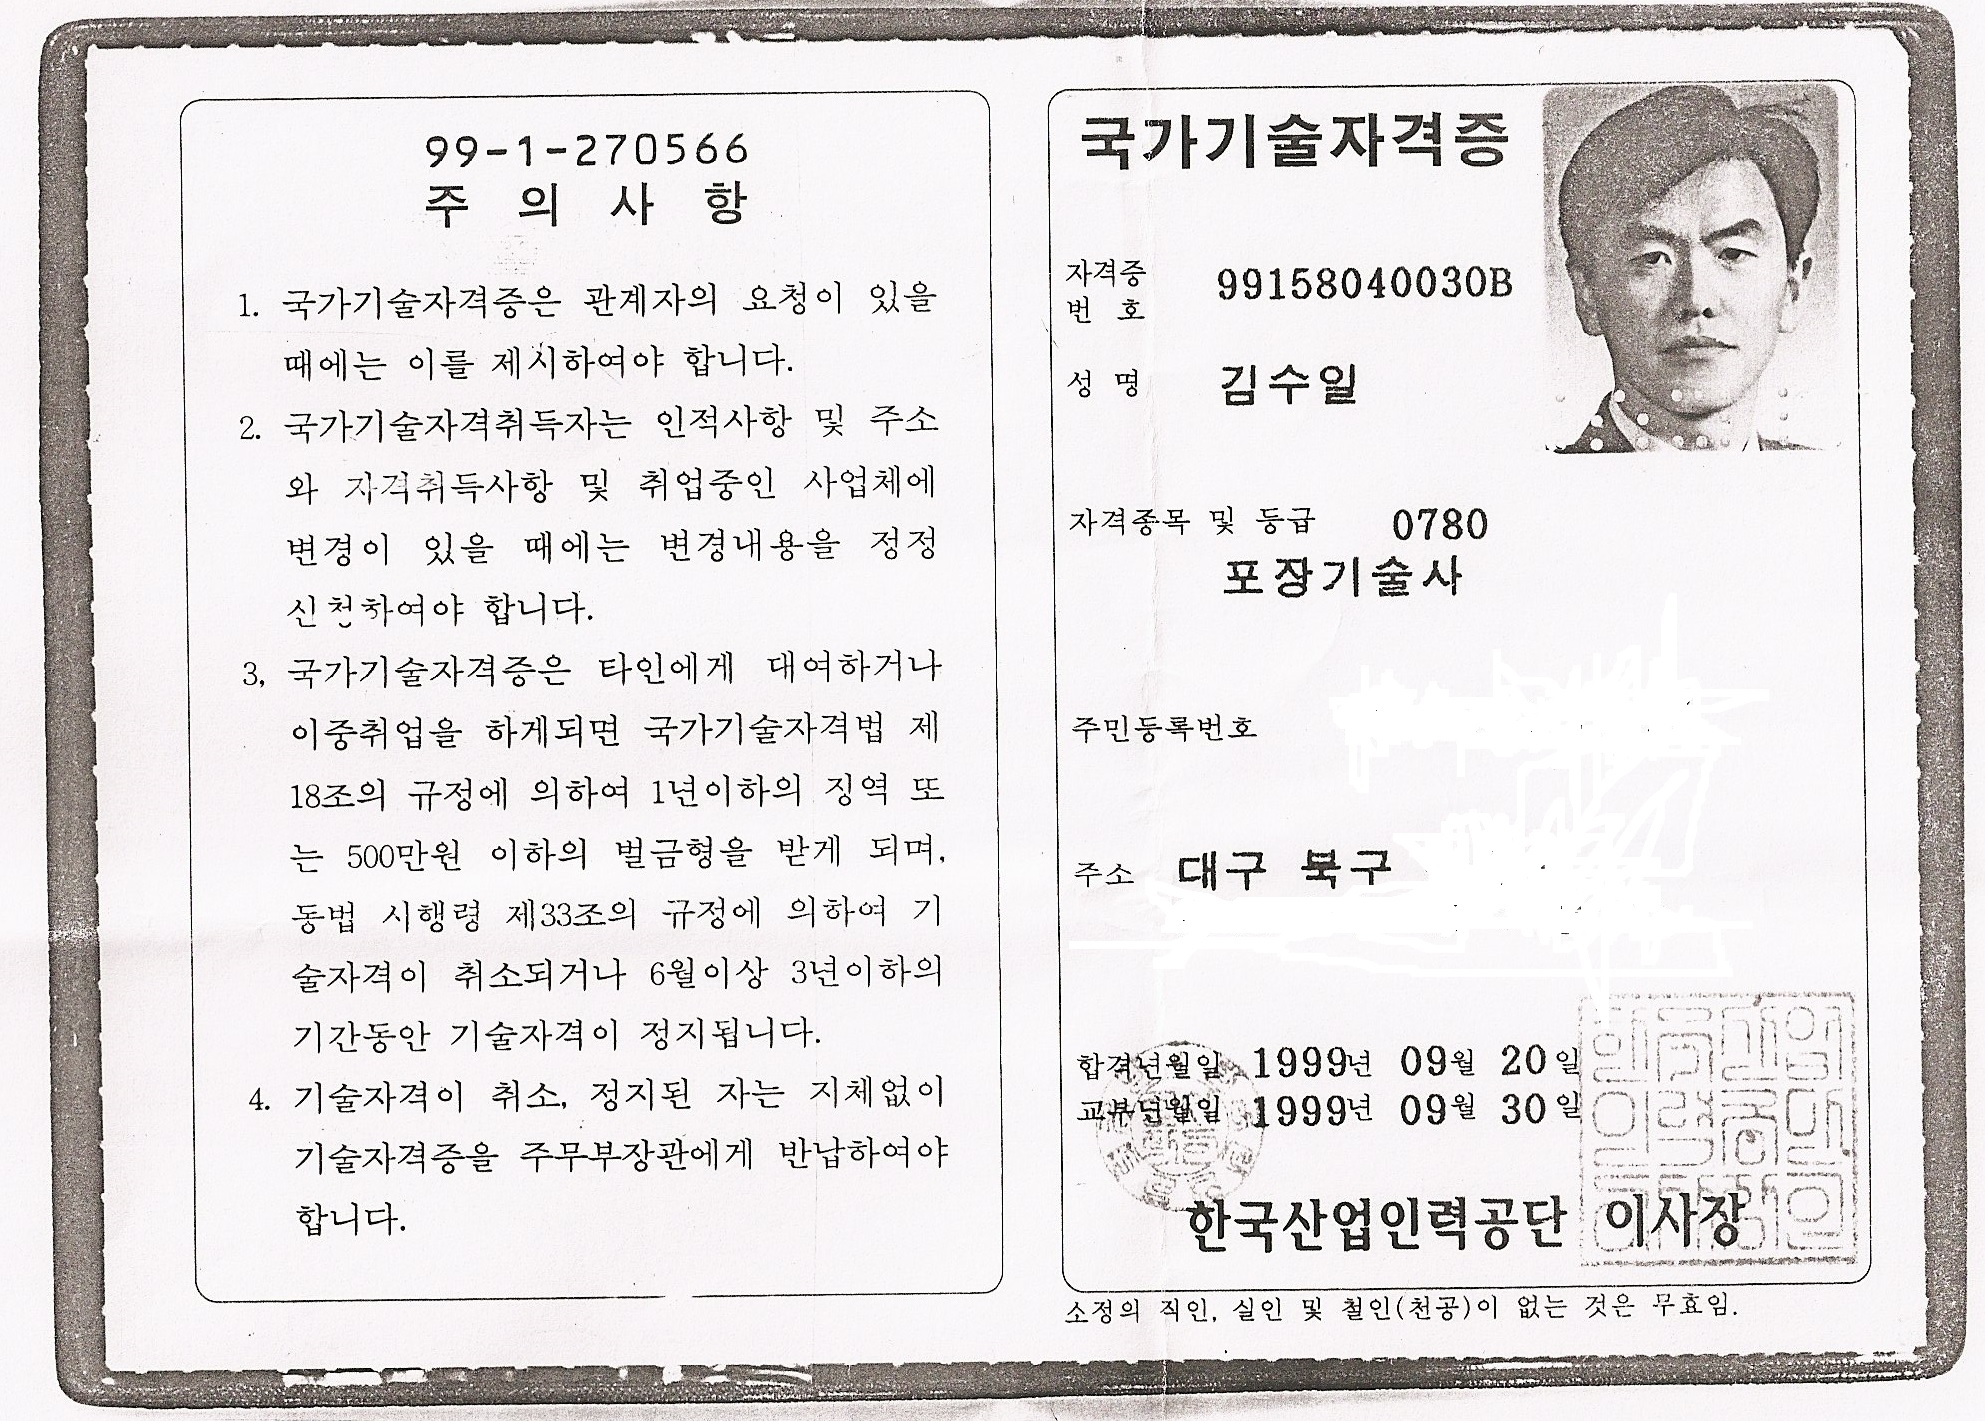 99-1-270566
주 의 사 항
1. 국가기술자격증은 관계자의 요청이 있을
때에는 이를 제시하여야 합니다.
2. 국가기술자격취득자는 인적사항 및 주소
와 자격취득사항 및 취업중인 사업체에
변경이 있을 때에는 변경내용을 정정
신청하여야 합니다.
3, 국가기술자격증은 타인에게 대여하거나
이중취업을 하게되면 국가기술자격법 제
18조의 규정에 의하여 1년이하의 징역 또
는 500만원 이하의 벌금형을 받게 되며,
동법 시행령 제33조의 규정에 의하여 기
술자격이 취소되거나 6월이상 3년이하의
기간동안 기술자격이 정지됩니다.
4. 기술자격이 취소, 정지된 자는 지체없이
기술자격증을 주무부장관에게 반납하여야
합니다.
국가기술자격증
자격증
번 호 99158040030B
성 명 김수일
자격종목 및 등급 0780
포장기술사
주민등록번호
주소 대구 북구
합격년월일 1999년 09월 20일
교부년월일 1999년 09월 30일
한국산업인력공단 이사장
소정의 직인, 실인 및 철인(천공)이 없는 것은 무효임.